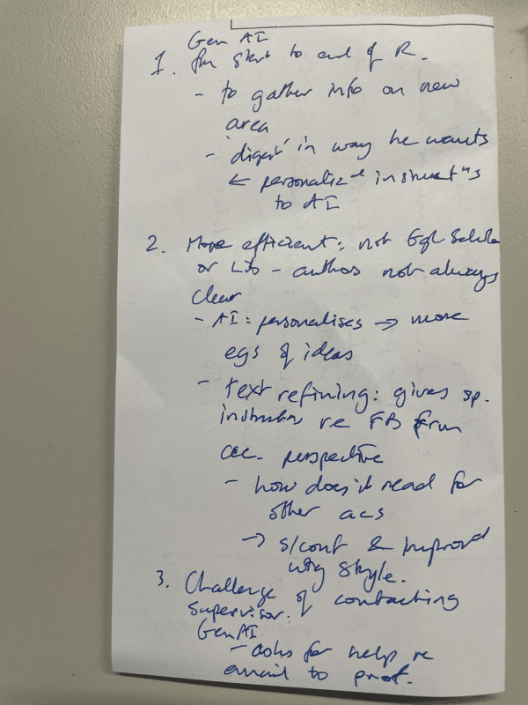 Gen AI
1. from start to end of R.
- to gather info on new
area
- 'digest' in way he wants
← personaliz-d instruct"s
to AI
2. More efficient: not Ggl Scholar
or Lib - author not always
clear
- AI: personalises → more
egs of ideas
- text refining: gives sp.
instruction re FB from
ac. perspective
- how does it read for
other acs
→ s/conf & improved
wtg style.
3. Challenge of contacting
supervisor.
GenAI
- asks for help re
email to prof.